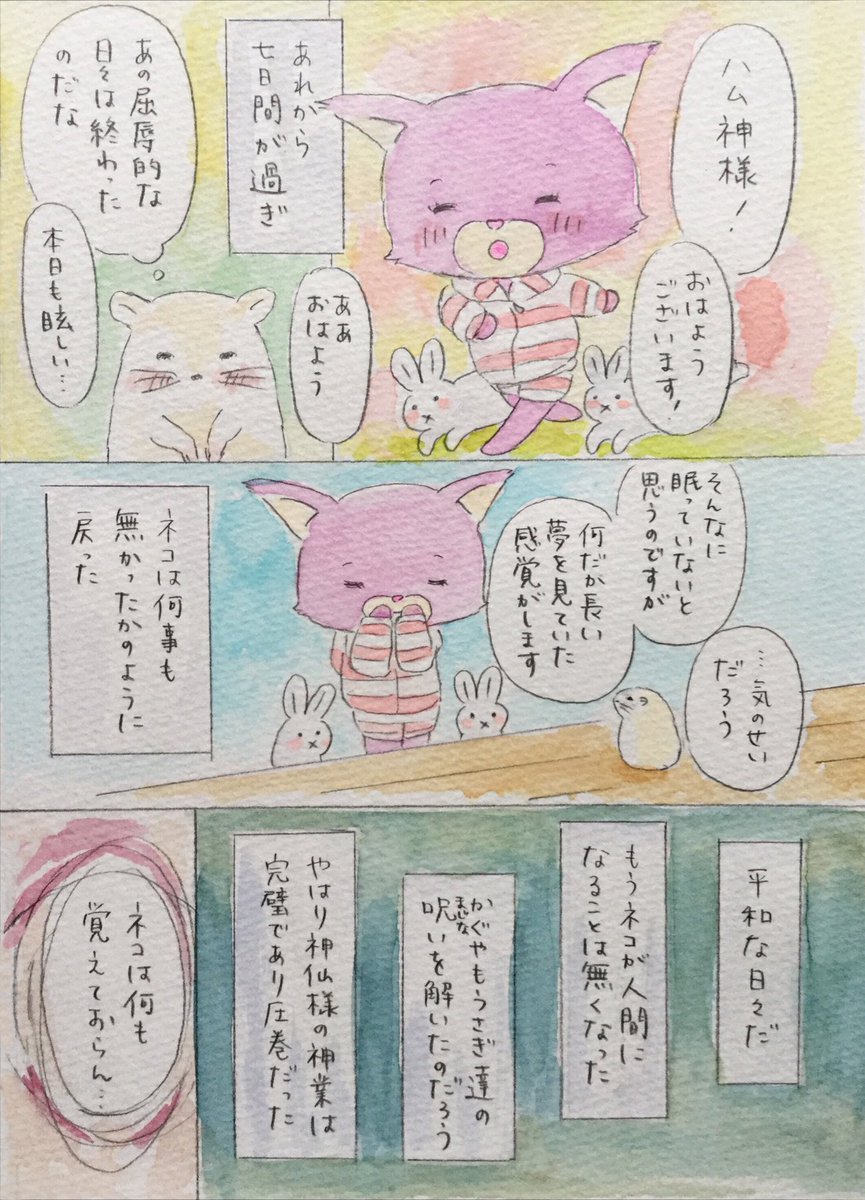 ハム神様!
おはよう
ございます!
あれから
七日間が過ぎ
ああ
おはよう
あの屈辱的な
日々は終わった
のだな
本日も眩しい…
そんなに
眠っていないと
思うのですが
何だか長い
夢を見ていた
感覚がします
…気のせい
だろう
ネコは何事も
無かったかのように
戻った
平和な日々だ
もうネコが人間に
なることは無くなった
かぐやもうさぎ達の
呪いを解いたのだろう
やはり神仙様の神業は
完璧であり圧巻だった
ネコは何も
覚えておらん…